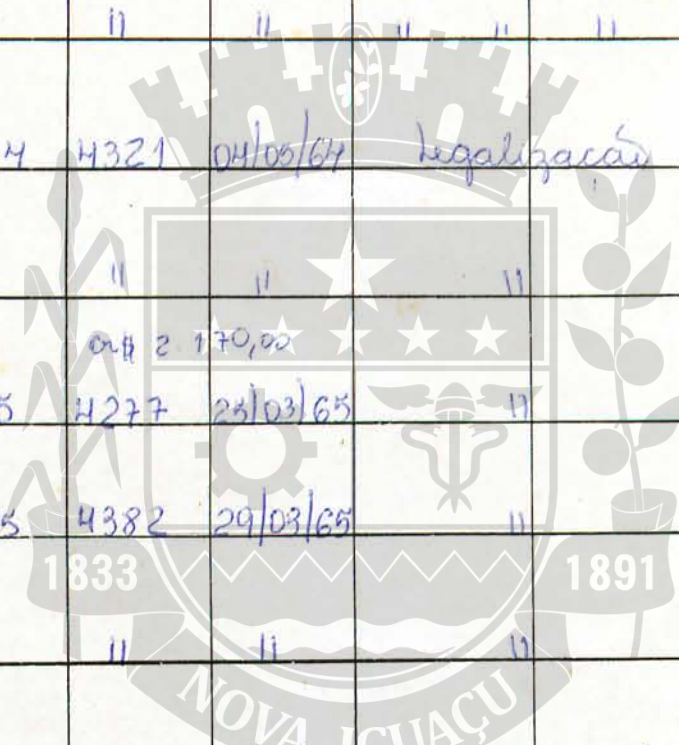 " " " " "
4 4321 04/05/64 Legalização
" " "
cr$ 2 170,00
5 4277 25/03/65 "
5 4382 29/03/65 "
1833 1891
" " "
NOVA IGUAÇU